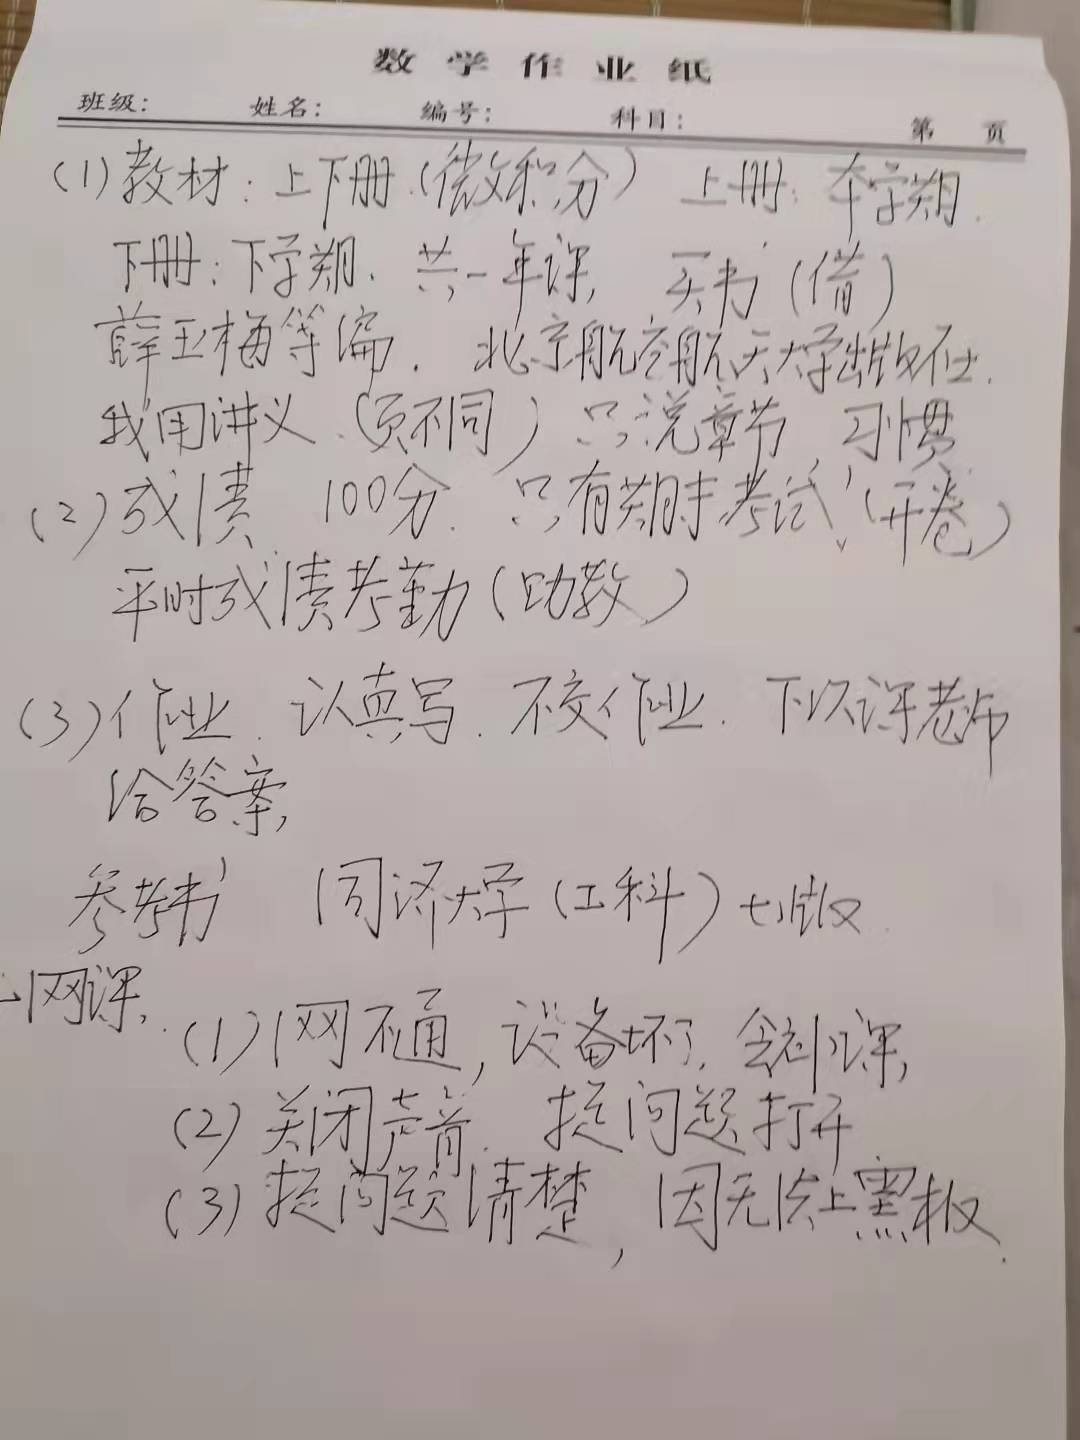 数学作业纸
班级： 姓名： 编号： 科目： 第 页
(1) 教材：上下册.(微积分) 上册：本学期.
下册：下学期. 共一年课, 买书(借)
薛玉梅等编. 北京航空航天大学出版社.
我用讲义.(页不同) 只说章节, 习惯
(2) 成绩. 100分. 只有期末考试, (开卷)
平时成绩考勤(助教)
(3) 作业. 认真写. 不交作业. 下次课老师
给答案,
参考书 同济大学(工科)七版.
网课.
(1) 网不通, 设备坏了. 会补课,
(2) 关闭声音. 提问题打开
(3) 提问题清楚, 因无法上黑板.